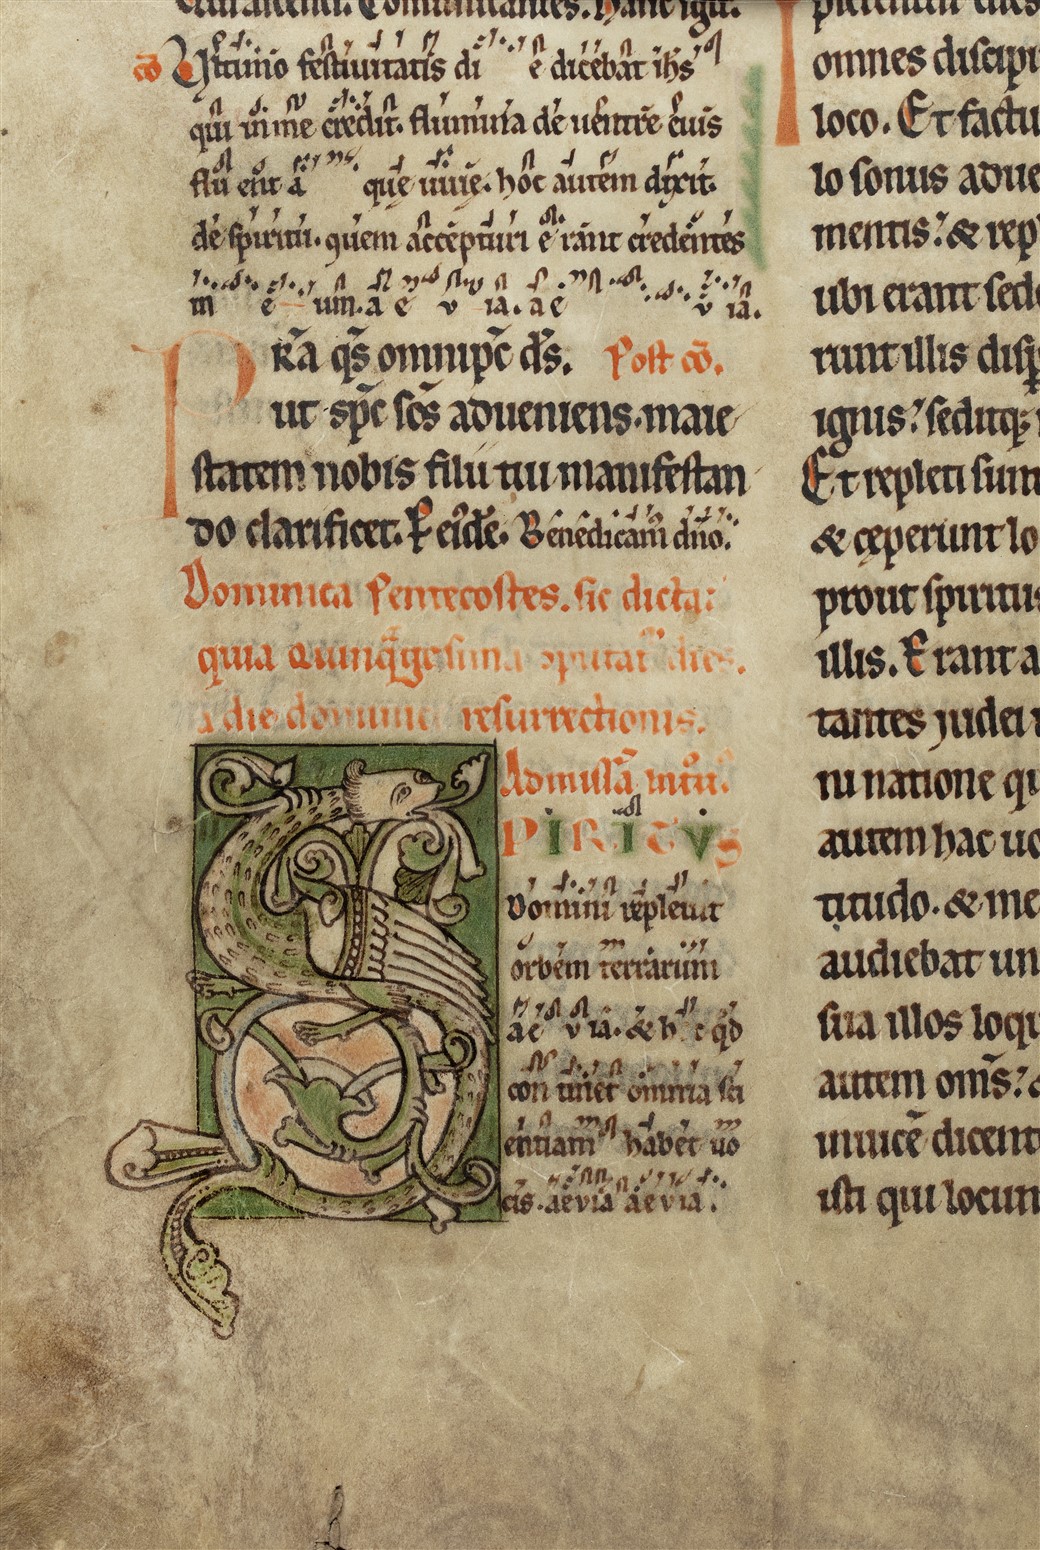 Communicantes. Hanc igit̄.
cō Ultimo festiuitatis di e dicebat ih̄s
qui in me credit. flumina de uentre eius
flu ent a quę uiuę. hoc autem dixit.
de spiritu. quem accepturi erant credentes
in e um. a e v ia. a e v ia.
P R̄a q̄s omnip̄c d̄s. Post cō.
ut sp̄c sc̄s adueniens. maie
statem nobis filii tui manifestan
do clarificet. P eiūdē. Benedicam̄ dn̄o.
Dominica Pentecostes. sic dicta.
quia quinq̄gesima dies.
a die dominice resurrectionis.
Ad missā intr̄.
SPIRITVS
Domini repleuit
orbem terrarum
a e v ia. & h c qd̄
con tinet omnia sci
entiam habet uo
cis. aevia aevia.
omnes discipu
loco. Et factu
lo sonus adue
mentis. & rep
ubi erant sede
runt illis disp̄
ignis. seditq;
Et repleti sunt
& cęperunt lo
prout spiritus
illis. Erant a
tantes iudei
ni natione qu
autem hac uo
titudo. & me
audiebat un
sua illos loqu
autem om̄s. &
inuicē dicent
isti qui locun